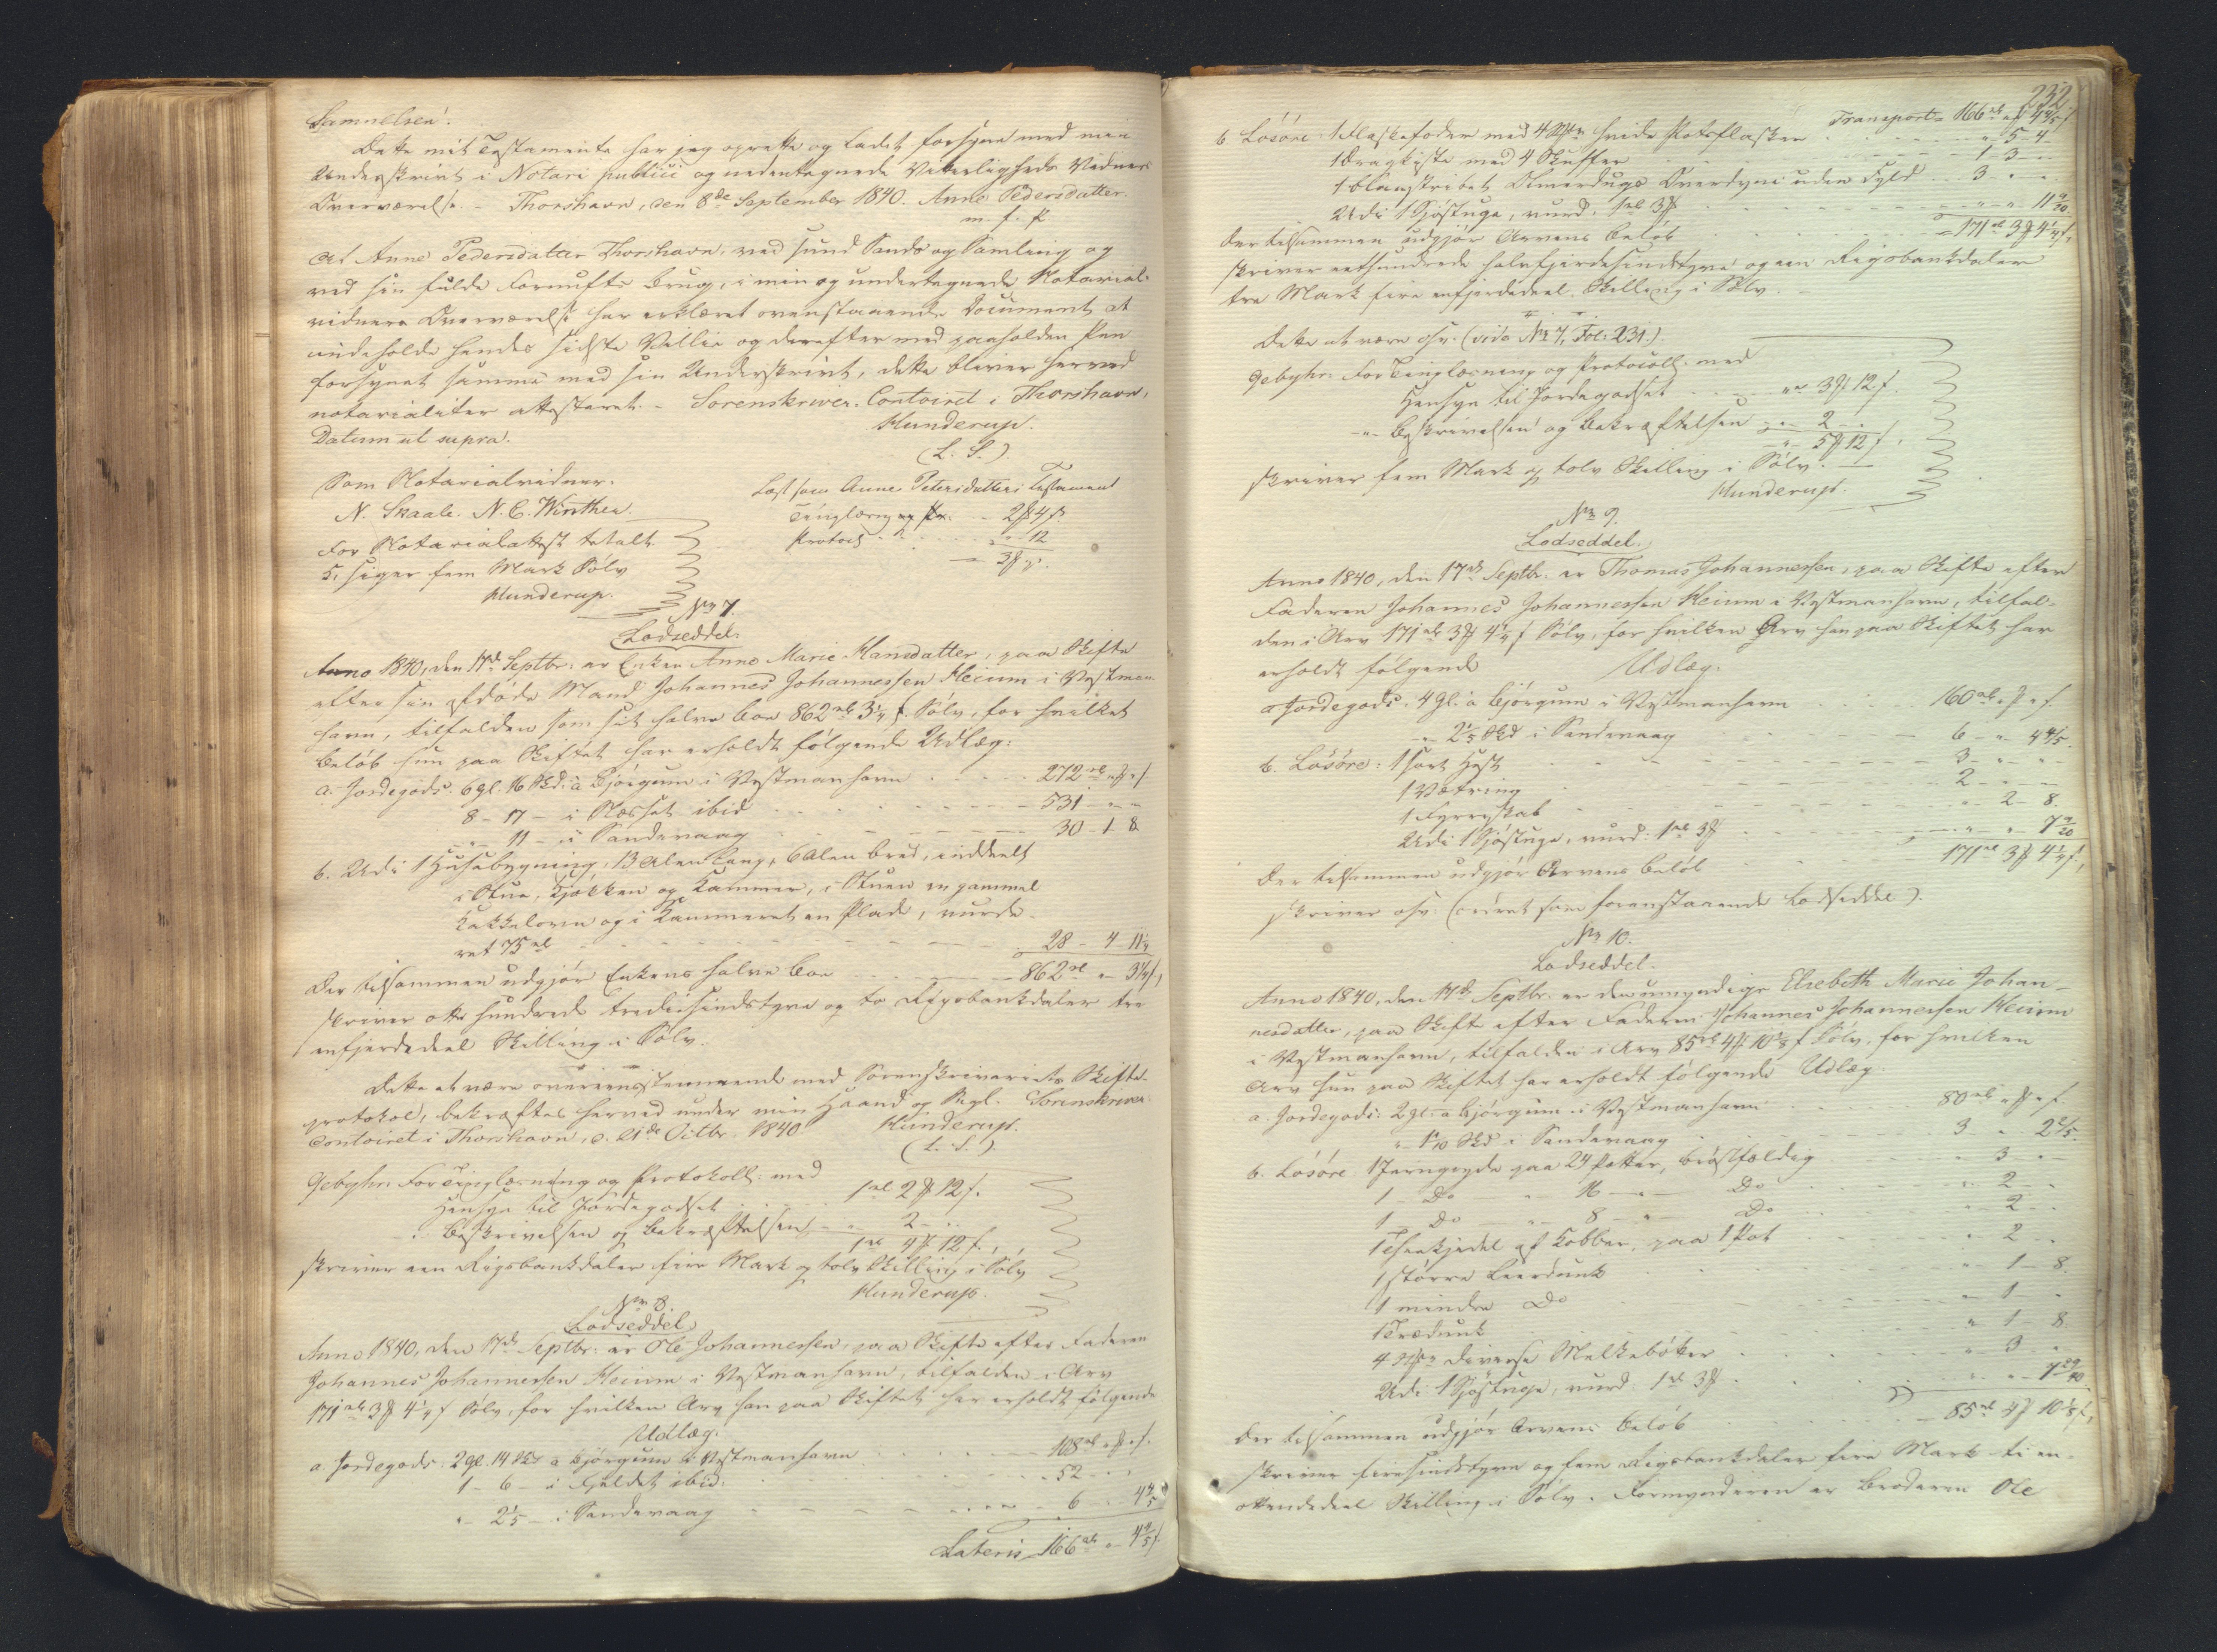 Samuelsen.
Dette mit Testamente har jeg oprettet og ladet forsyne med min
Underskrivt i Notari publici og nedentegnede Vitterligheds Vidners
Overværelse. - Thorshavn, den 8de September 1840. Anne Pedersdatter
m. f. P.
At Anne Pedersdatter Thorshavn, ved sund Sands og Samling og
ved sin fulde Fornufts Brug, i min og undertegnede Notarial-
vidners Overværelse har erklæret ovenstaaende Document at
indeholde hendes sidste Villie og derefter med paaholden Pen
forsynet samme med sin Underskrivt, dette bliver herved
notarialiter attesteret. - Sorenskriver-Contoiret i Thorshavn,
Datum ut supra.
Hunderup.
(L. S.)
Som Notarialvidner.
N. Skaale. N. C. Winther.
For Notarialattest betalt
5, siger fem Mark Sølv
Hunderup.
Læst som Anne Petersdatters Testament
Tinglæsning 2 ₰ 4 s.
Protocl. " - 12
3 ₰ " s.
No 7.
Lodseddel.
Anno 1840, den 17de Septbr. er Enken Anne Marie Hansdatter, paa Skifte
efter sin afdøde Mand Johannes Johannessen Heium i Vestman-
havn, tilfalden som sit halve Boe 862 rbd 3 1/4 s. Sølv, for hvilket
Beløb hun paa Skiftet har erholdt følgende Udlæg:
a. Jordegods. 6 gl. 16 Skd. a Bjørgum i Vestmanhavn 272 rbd " ₰ " s.
8 - 17 - i Næsset ibid 531 - " - "
" - 11 - i Sandsvaag 30 - 1 - 8
b. Udi 1 Huusebygning, 13 Alen lang, 6 Alen bred, inddeelt
i Stue, Kjøkken og Kammer, i Stuen en gammel
Kakkelovn og i Kammeret en Plade, vurde-
ret 75 rbd 28 - 4 - 11 1/4
Der tilsammen udgjør Enkens halve Boe 862 rbd " - 3 1/4 s,
skriver otte hundrede tredsindstyve og to Rigsbankdaler tre
enfjerdedeel Skilling i Sølv.
Dette at være overeensstemmende med Sorenskriveriets Skifte-
protokol, bekræftes herved under min Haand og Segl. Sorenskriver-
Contoiret i Thorshavn, d. 21de Octbr. 1840
Hunderup.
(L. S.)
Gebyhr: For Tinglæsning og Protokoll. med
Hensyn til Jordegodset 1 rbd 2 ₰ 12 s.
" Beskrivelsen og Bekræftelsen " - 2 - "
1 rbd 4 ₰ 12 s.,
skriver een Rigsbankdaler fire Mark og tolv Skilling i Sølv
Hunderup.
No 8.
Lodseddel.
Anno 1840, den 17de Septbr. er Ole Johannessen, paa Skifte efter Faderen
Johannes Johannessen Heium i Vestmanhavn, tilfalden i Arv
171 rbd 3 ₰ 4 1/4 s Sølv, for hvilken Arv han paa Skiftet har erholdt følgende
Udlæg.
a. Jordegods. 2 gl. 14 Skd a Bjørgum i Vestmanhavn 108 rbd " ₰ " s.
1 - 6 - i Fjeldet ibid. 52 - " - "
" - 2 1/5 - i Sandsvaag 6 - " 4 4/5
Lateris 166 rbd " - 4 4/5 s.
232
Transport 166 rbd " ₰ 4 4/5 s
b. Løsøre: 1 Flaskefoder med 4 Stkr hvide Potsflasker " 5 - 4
1 Dragkiste med 4 Skuffer 1 - 3 - "
1 blaastribet Olmerdugs Overdyne uden Fyld 3 - " - "
Udi 1 Sjøstuge, vurd. 1 rbd 3 ₰ " - " - 11 9/20
Der tilsammen udgjør Arvens Beløb 171 rbd 3 ₰ 4 1/4 s,
skriver eethundrede halvfjerdesindstyve og een Rigsbankdaler
tre Mark fire enfjerdedeel Skilling i Sølv.
Dette at være osv. (vide No 7, Fol: 231.)
Gebyhr: For Tinglæsning og Protocoll. med
Hensyn til Jordegodset " rbd 3 ₰ 12 s
" Beskrivelsen og Bekræftelsen " 2 - "
" - 5 ₰ 12 s,
skriver fem Mark og tolv Skilling i Sølv.
Hunderup.
No 9.
Lodseddel.
Anno 1840, den 17de Septbr. er Thomas Johannessen, paa Skifte efter
Faderen Johannes Johannessen Heium i Vestmanhavn, tilfal-
den i Arv 171 rbd 3 ₰ 4 1/4 s Sølv, for hvilken Arv han paa Skiftet har
erholdt følgende Udlæg.
a. Jordegods. 4 gl. a Bjørgum i Vestmanhavn 160 rbd " ₰ " s.
" - 2 1/5 Skd i Sandsvaag 6 - " 4 4/5.
b. Løsøre: 1 sort Hest 3 - " - "
1 Vætring 2 - " - "
1 Fyrreskab " - 2 - 8.
Udi 1 Sjøstuge, vurd: 1 rbd 3 ₰ " - " - 7 9/20
Der tilsammen udgjør Arvens Beløb 171 rbd 3 ₰ 4 1/4 s,
skriver osv. (ordret som foranstaaende Lodseddel).
No 10.
Lodseddel.
Anno 1840, den 17de Septbr. er den umyndige Elsebeth Marie Johan-
nesdatter, paa Skifte efter Faderen Johannes Johannessen Heium
i Vestmanhavn, tilfalden i Arv 85 rbd 4 ₰ 10 1/8 s Sølv, for hvilken
Arv hun paa Skiftet har erholdt følgende Udlæg.
a. Jordegods: 2 gl. a Bjørgum i Vestmanhavn 80 rbd " ₰ " s.
" - 1 1/10 Skd i Sandsvaag 3 - " 2 2/5.
b. Løsøre 1 Jerngryde paa 24 Potter, brøstfældig " - 3 - "
1 - Do " - 16 - " - Do " - 2 - "
1 - Do " - 8 - " - Do " - 2 - "
1 Theekjedel af Kobber, paa 1 Pot " - 2 - "
1 større Leerdunk " - 1 - 8.
1 mindre Do " - 1 - "
1 Trædunk " - 1 - 8
4 Stkr diverse Melkebøtter " - 3 - "
Udi 1 Sjøstuge, vurd: 1 rbd 3 ₰ " - " - 7 29/40
Der tilsammen udgjør Arvens Beløb 85 rbd 4 ₰ 10 1/8 s,
skriver firesindstyve og fem Rigsbankdaler fire Mark ti en-
ottendedeel Skilling i Sølv. Formynderen er Broderen Ole